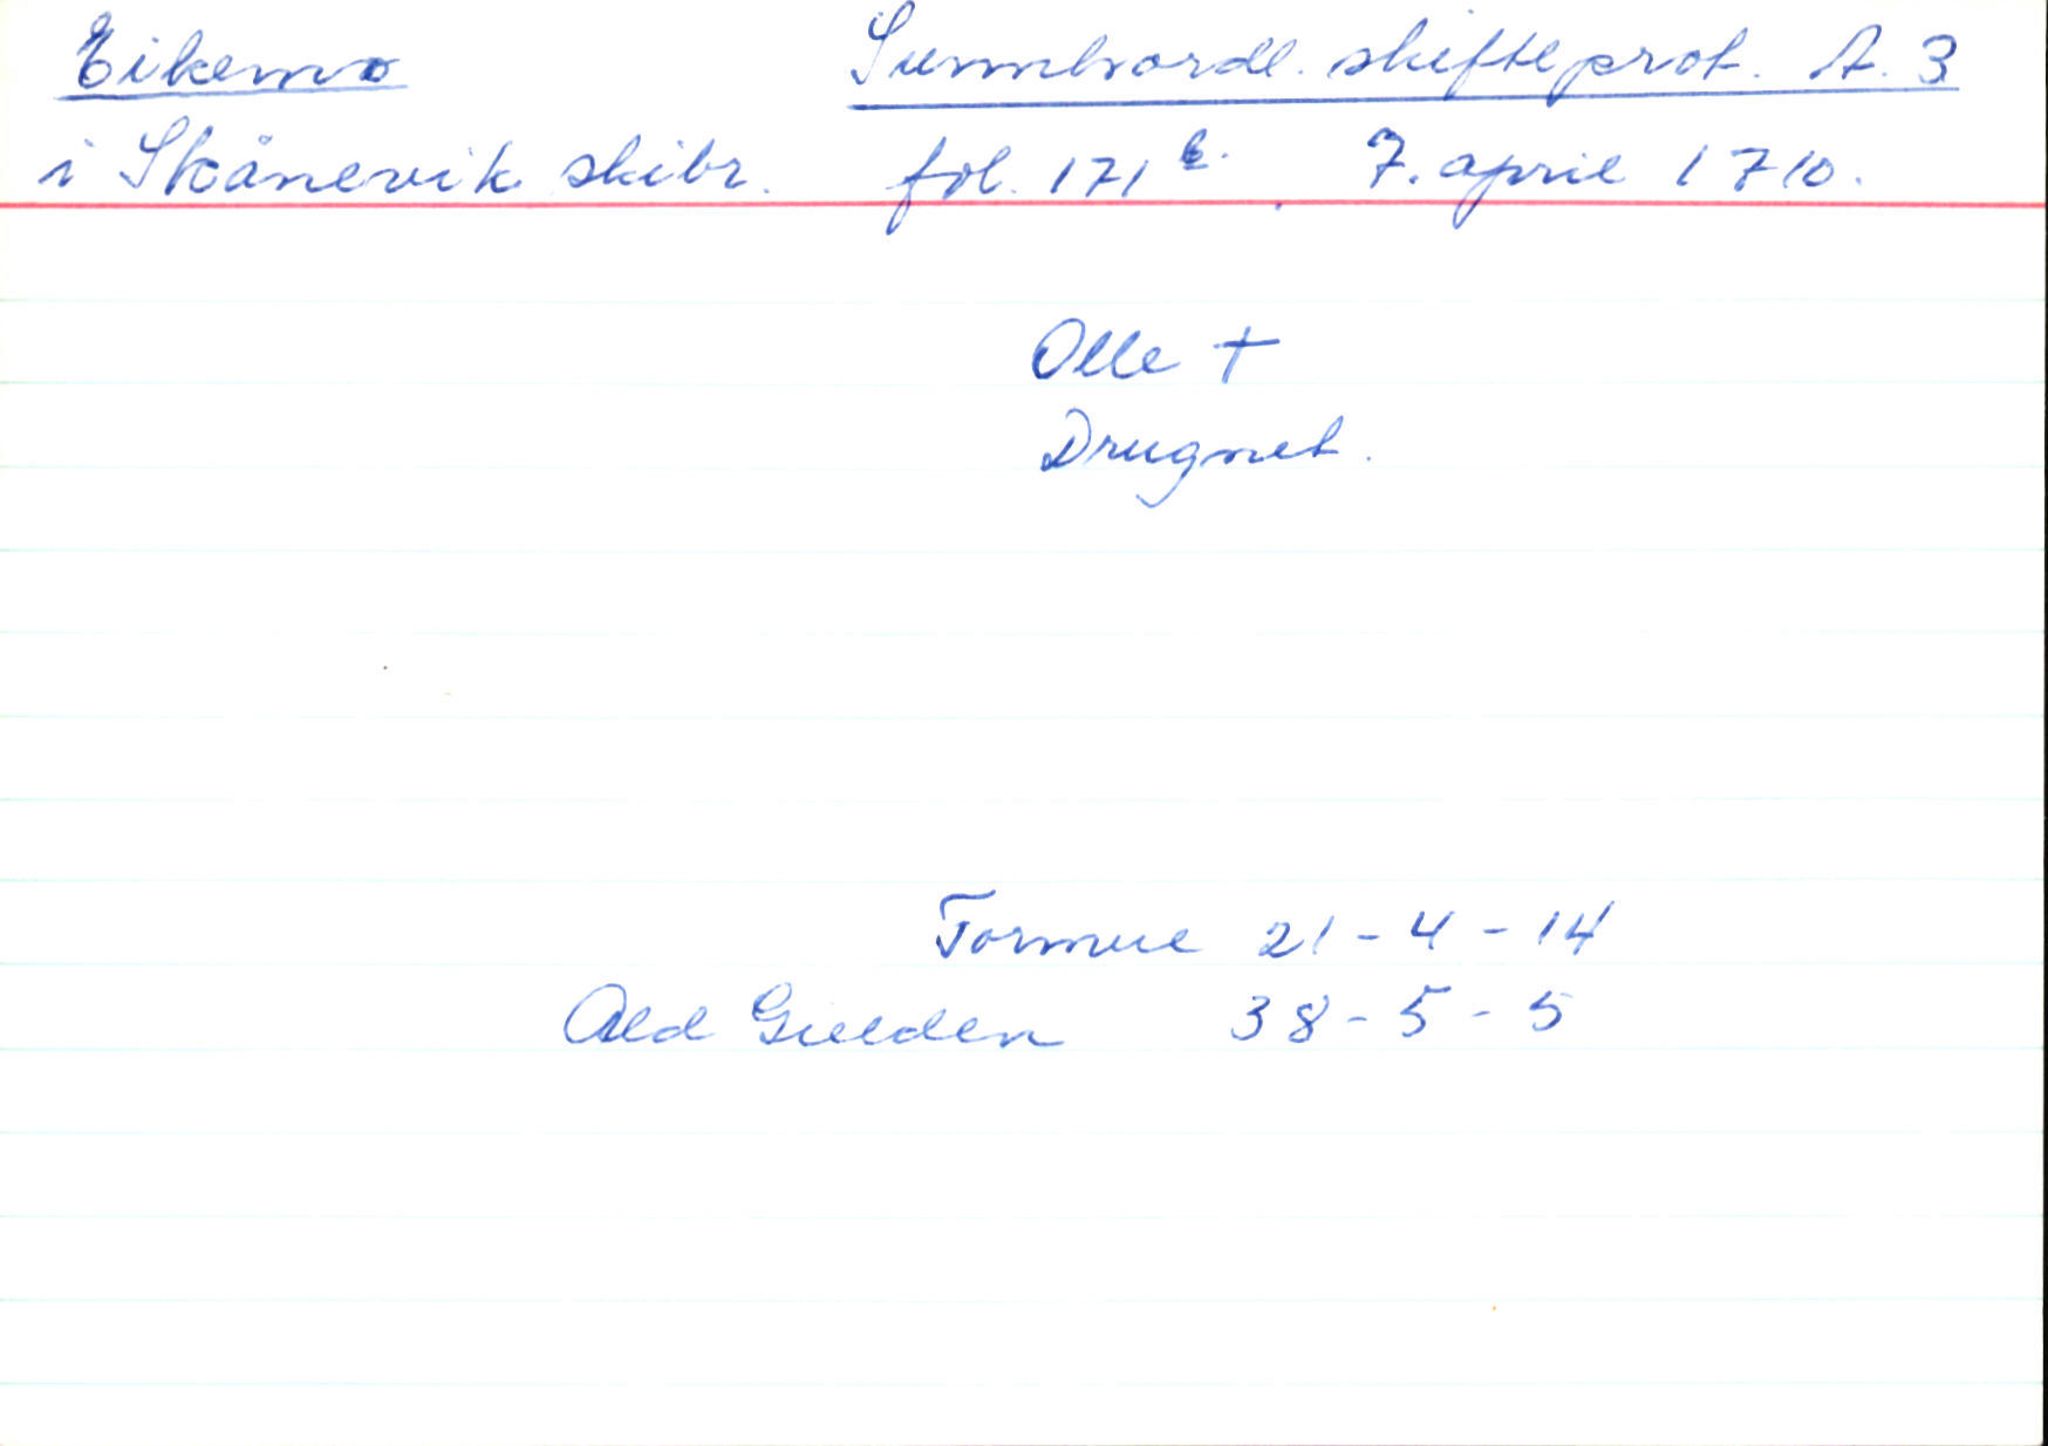 Eikemo Sunnhordl. skifteprot. A. 3
i Skånevik skibr. fol. 171 b. 7. april 1710.
Olle +
Drugnet.
Formue 21 - 4 - 14
Ald Gielden 38 - 5 - 5